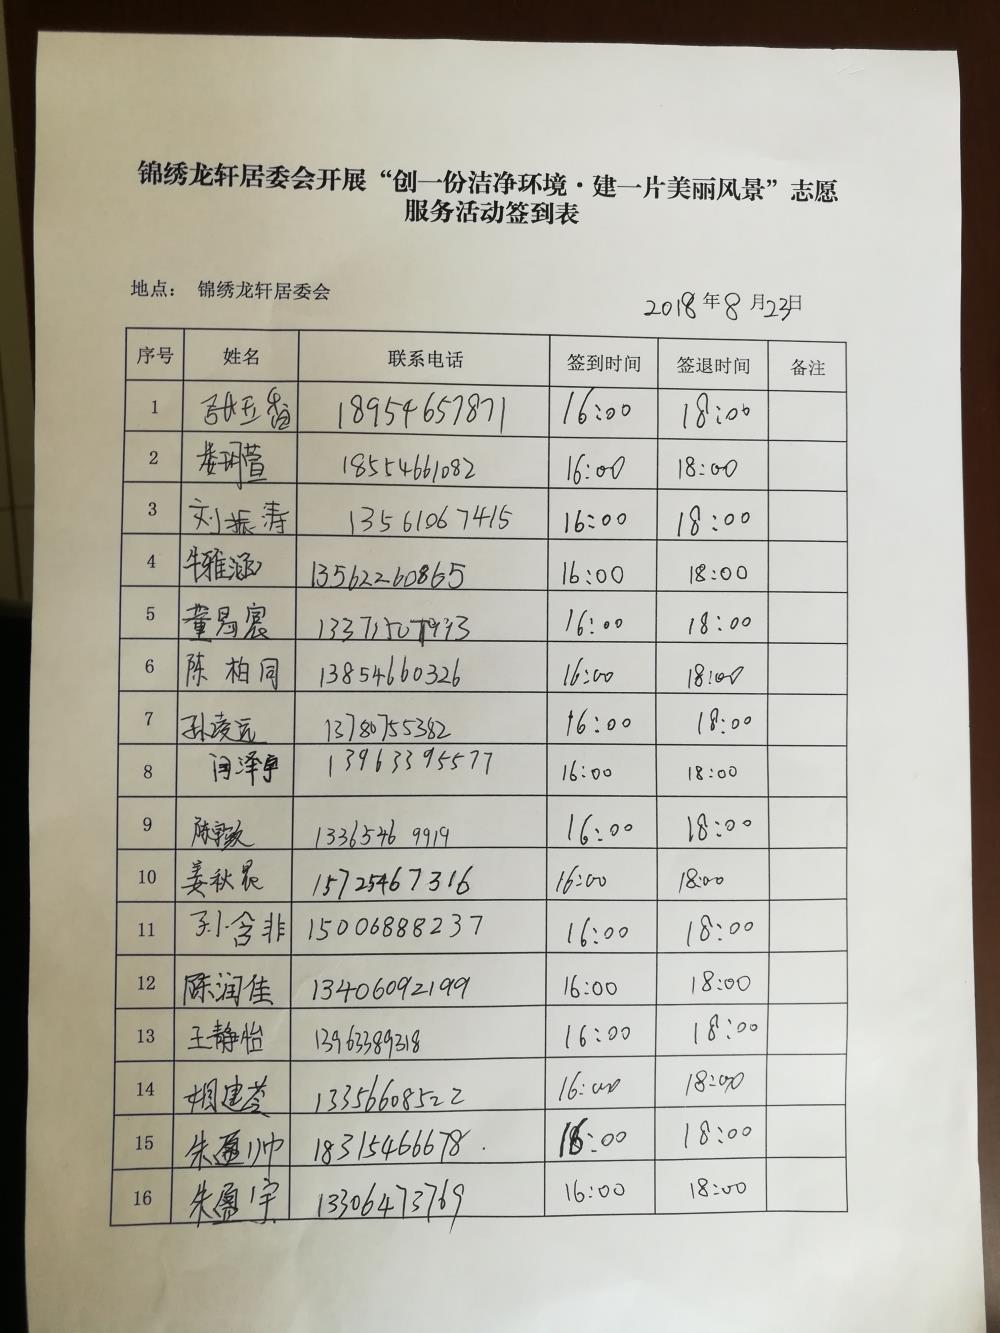 锦绣龙轩居委会开展“创一份洁净环境·建一片美丽风景”志愿
服务活动签到表
地点： 锦绣龙轩居委会
2018年8月23日
序号 姓名 联系电话 签到时间 签退时间 备注
1 18954657871 16:00 18:00
2 娄玥萱 18554661082 16:00 18:00
3 刘振涛 13561067415 16:00 18:00
4 牛雅涵 13562260865 16:00 18:00
5 董昌宸 16:00 18:00
6 陈柏同 13854660326 16:00 18:00
7 孙凌远 13780755382 16:00 18:00
8 闫泽宇 13963395577 16:00 18:00
9 13365469919 16:00 18:00
10 姜秋晨 15725467316 16:00 18:00
11 孙含非 15006888237 16:00 18:00
12 陈润佳 13406092199 16:00 18:00
13 王静怡 13963389318 16:00 18:00
14 13356608522 16:00 18:00
15 朱盈帅 18315466678 16:00 18:00
16 朱盈宇 13306473769 16:00 18:00